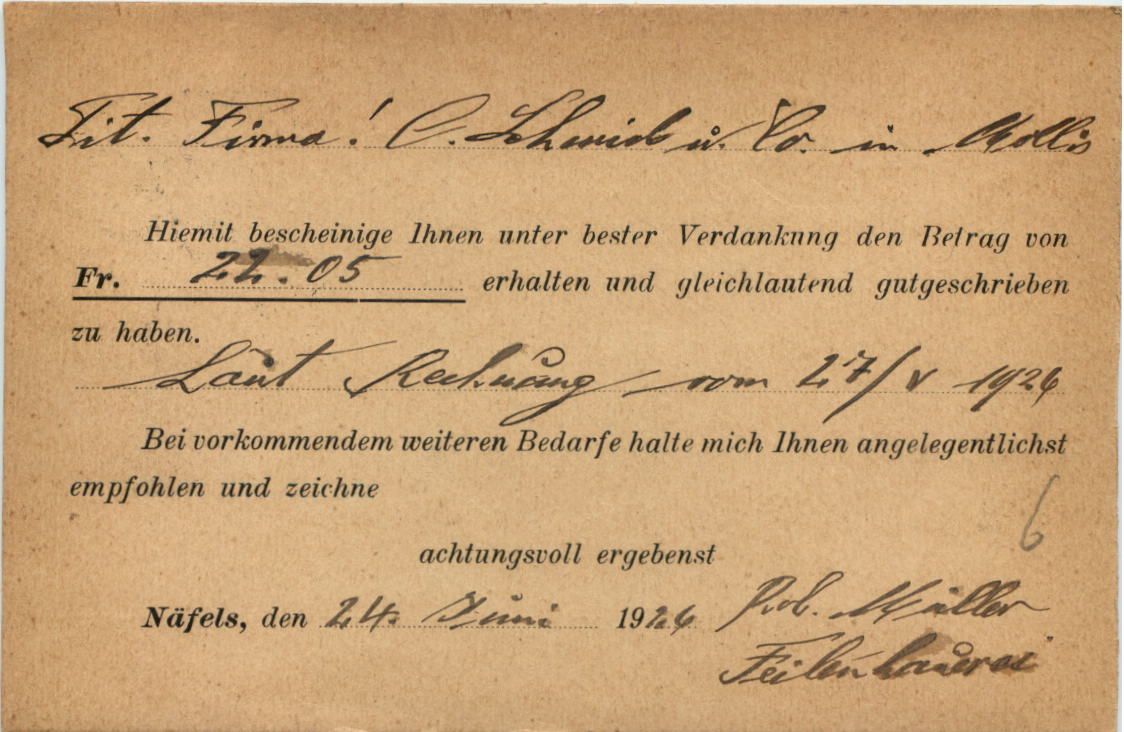 Tit. Firma! C. Schmid u. Co. in Mollis
Hiemit bescheinige Ihnen unter bester Verdankung den Betrag von
Fr. 22.05 erhalten und gleichlautend gutgeschrieben
zu haben.
Laut Rechnung vom 27/V 1926
Bei vorkommendem weiteren Bedarfe halte mich Ihnen angelegentlichst
empfohlen und zeichne
6
achtungsvoll ergebenst
Näfels, den 24. Juni 1926 Rob. Müller
Feilenhauerei